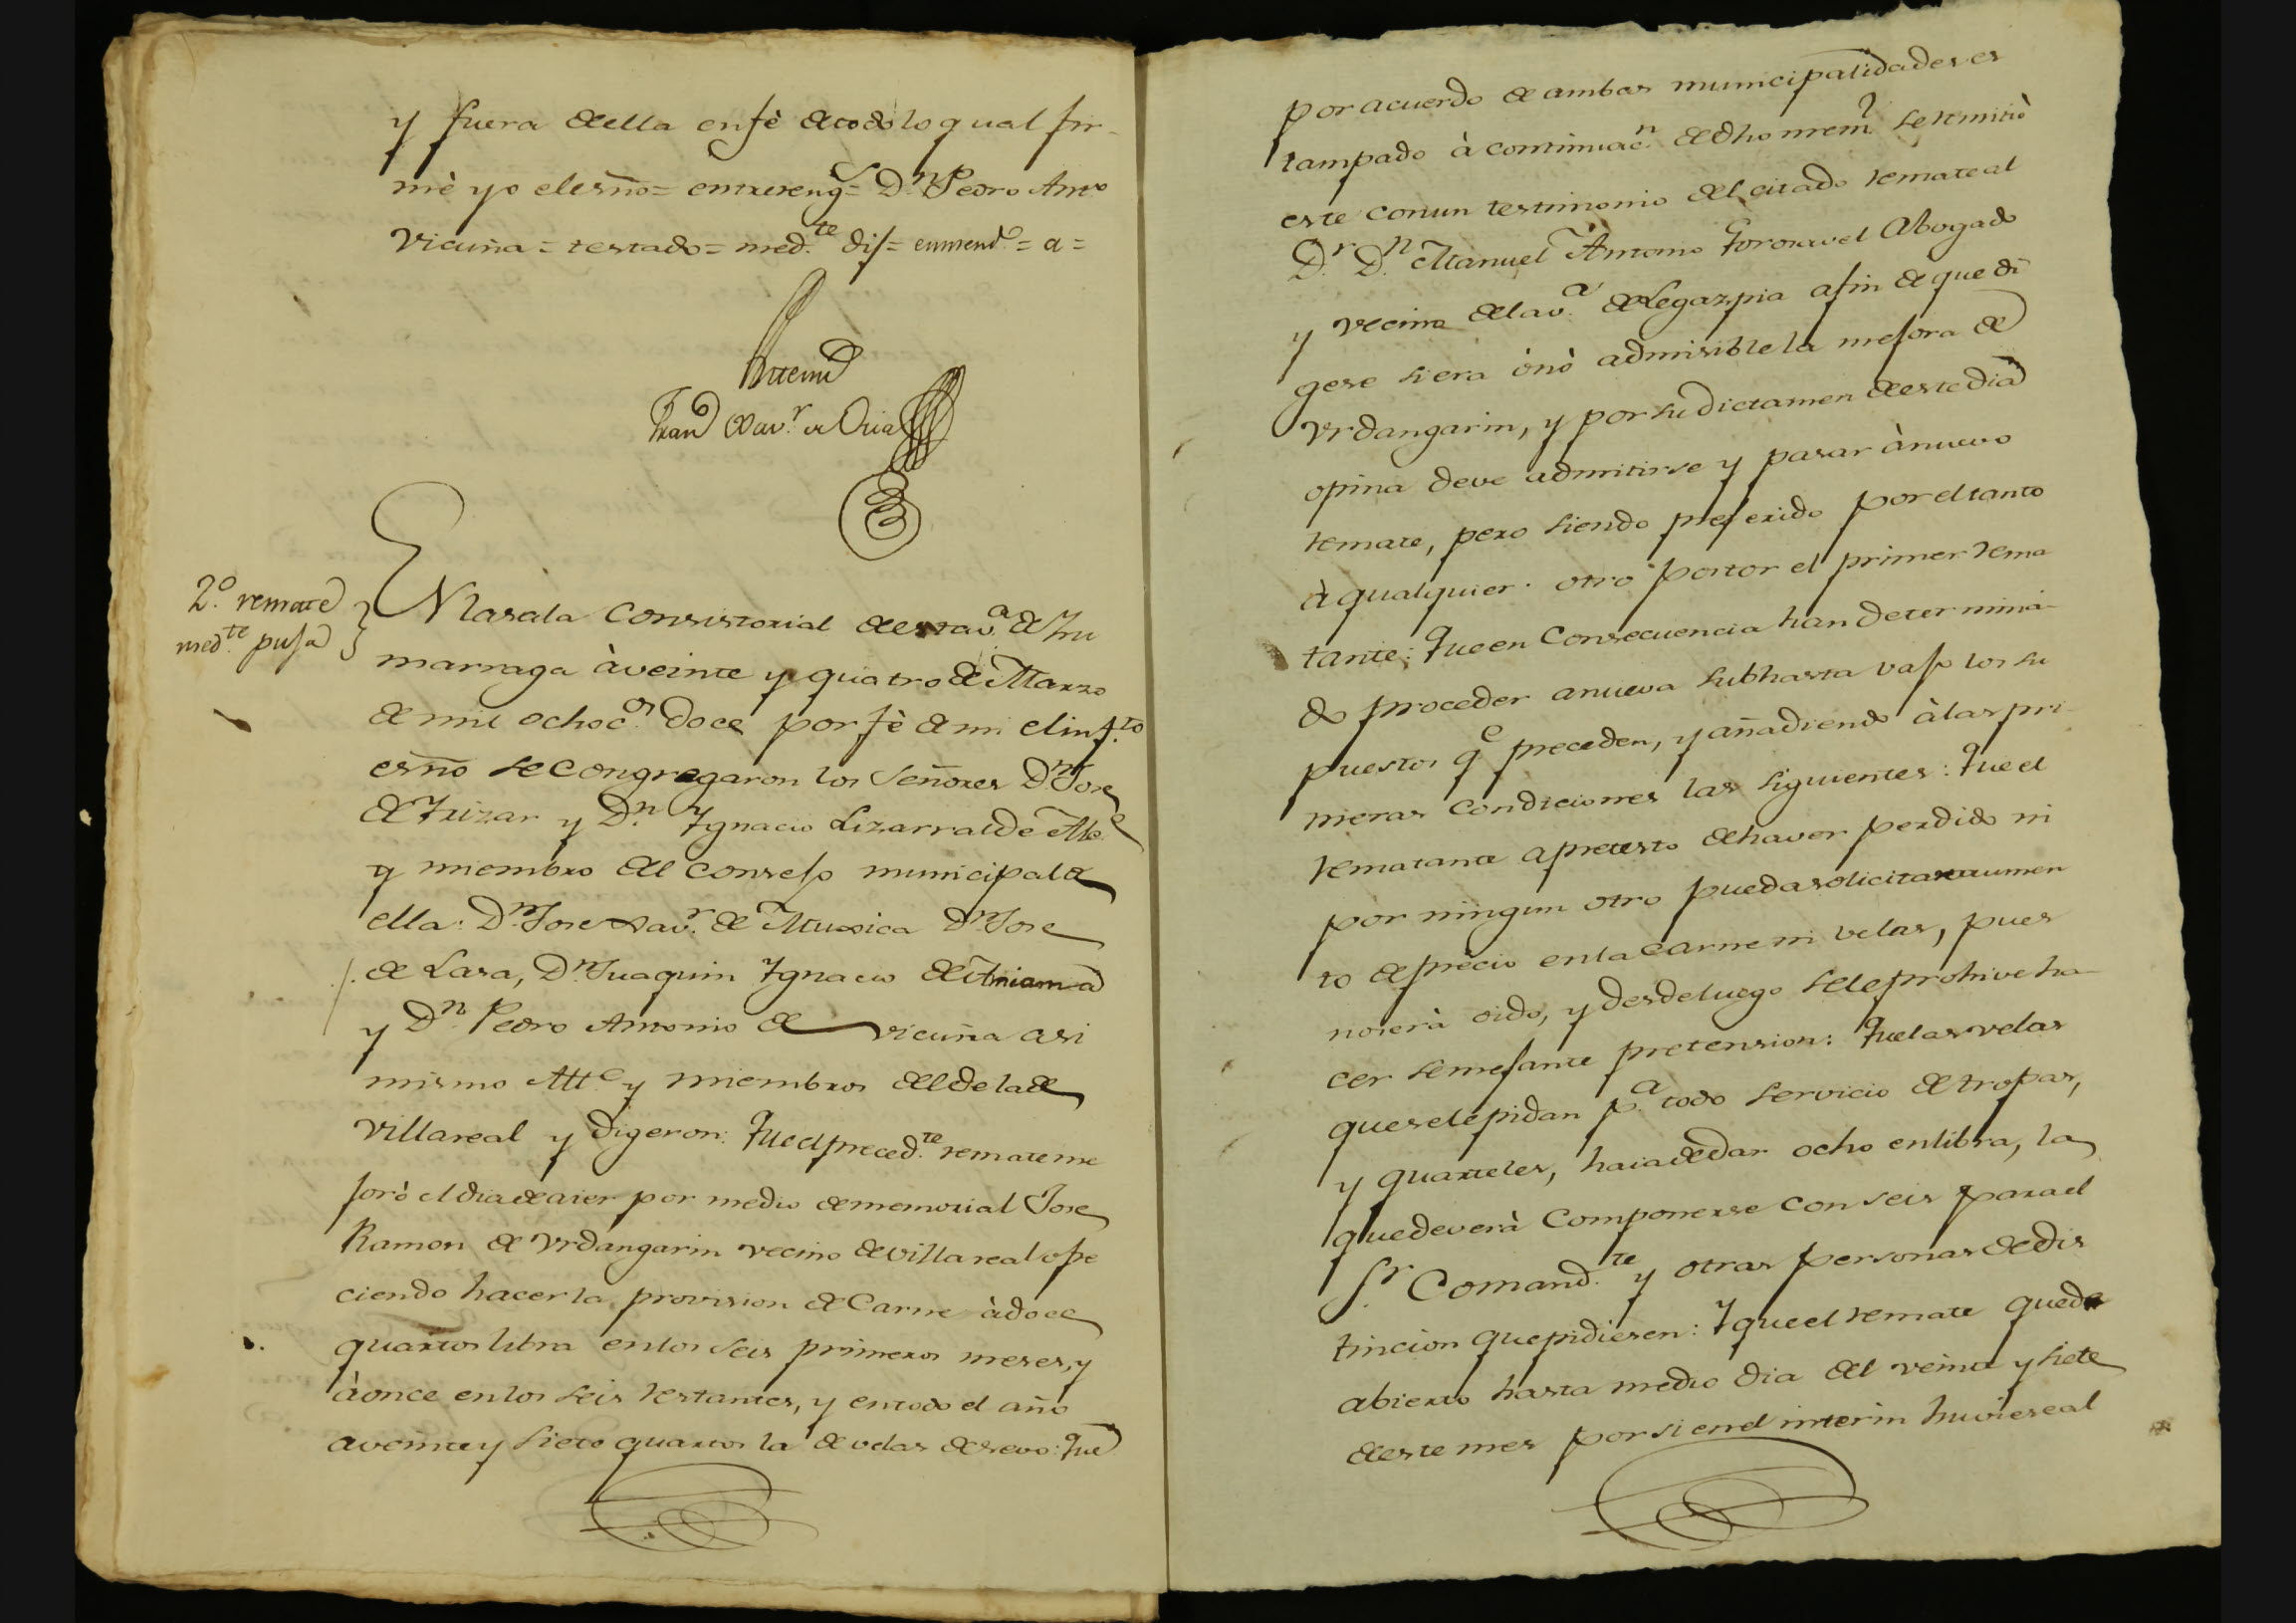 y fuera de ella en fè de todo lo qual fir-
mè yo el esño = entrereng.s = D.n Pedro Ant.o
Vicuña = testado = med.te dis = enmend.o = a =
Antemi
Fran.co Xav.r de Oria
2.o remate
med.te puja
EN la sala Consistorial de esta v.a de Zu
marraga à veinte y quatro de Marzo
de mil ochoc.os doce por fè de mi el inf.to
esño se congregaron los Señores D.n Jose
de Yrizar y D.n Ygnacio Lizarralde Alc.e
y miembro del Consejo municipal de
ella: D.n Jose Xav.r de Muxica D.n Jose
de Lasa, D.n Juaquin Ygnacio de
y D.n Pedro Antonio de Vicuña asi
mismo Alt.e y miembros del de la de
Villareal y digeron: Que el preced.te remate me
jorò el dia de aier por medio de memorial Jose
Ramon de Vrdangarin vecino de Villareal ofre
ciendo hacer la provision de Carne à doce
quartos libra en los seis primeros meses, y
à once en los seis restantes, y en todo el año
a veinte y siete quartos la de velas de sevo: Que
por acuerdo de ambas municipalidades es
tampado à continuac.n de dho mem.l se remitiò
este con un testimonio del citado remate al
D.r D.n Manuel Antonio Gorosavel Abogado
y vecino de la v.a de Legazpia a fin de que di
gese si era ò nò admisible la mejora de
Vrdangarin, y por su dictamen de este dia
opina deve admitirse y pasar à nuevo
remate, pero siendo preferido por el tanto
à qualquier otro postor el primer rema
tante: Que en Consecuencia han determina-
do proceder a nueva subhasta vajo los su
puestos q.e preceden, y añadiendo à las pri-
meras condiciones las siguientes: Que el
rematante a pretesto de haver perdido ni
por ningun otro pueda solicitar aumen
to de precio en la carne ni velas, pues
no serà oido, y desde luego se le prohive ha-
cer semejante pretension: Que las velas
que se le pidan p.a todo servicio de tropas,
y quarteles, haia de dar ocho en libra, la
que deverà componerse con seis para el
S.r Comand.te y otras personas de dis
tincion que pidiesen: Y que el remate quede
abierto hasta medio dia del veinte y siete
de este mes por si en el interin huviese al